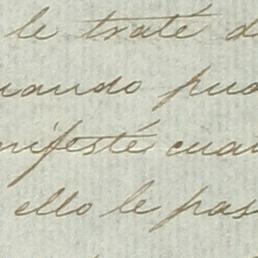 le traté d
uando pud
nifesté cuan
ello le pas